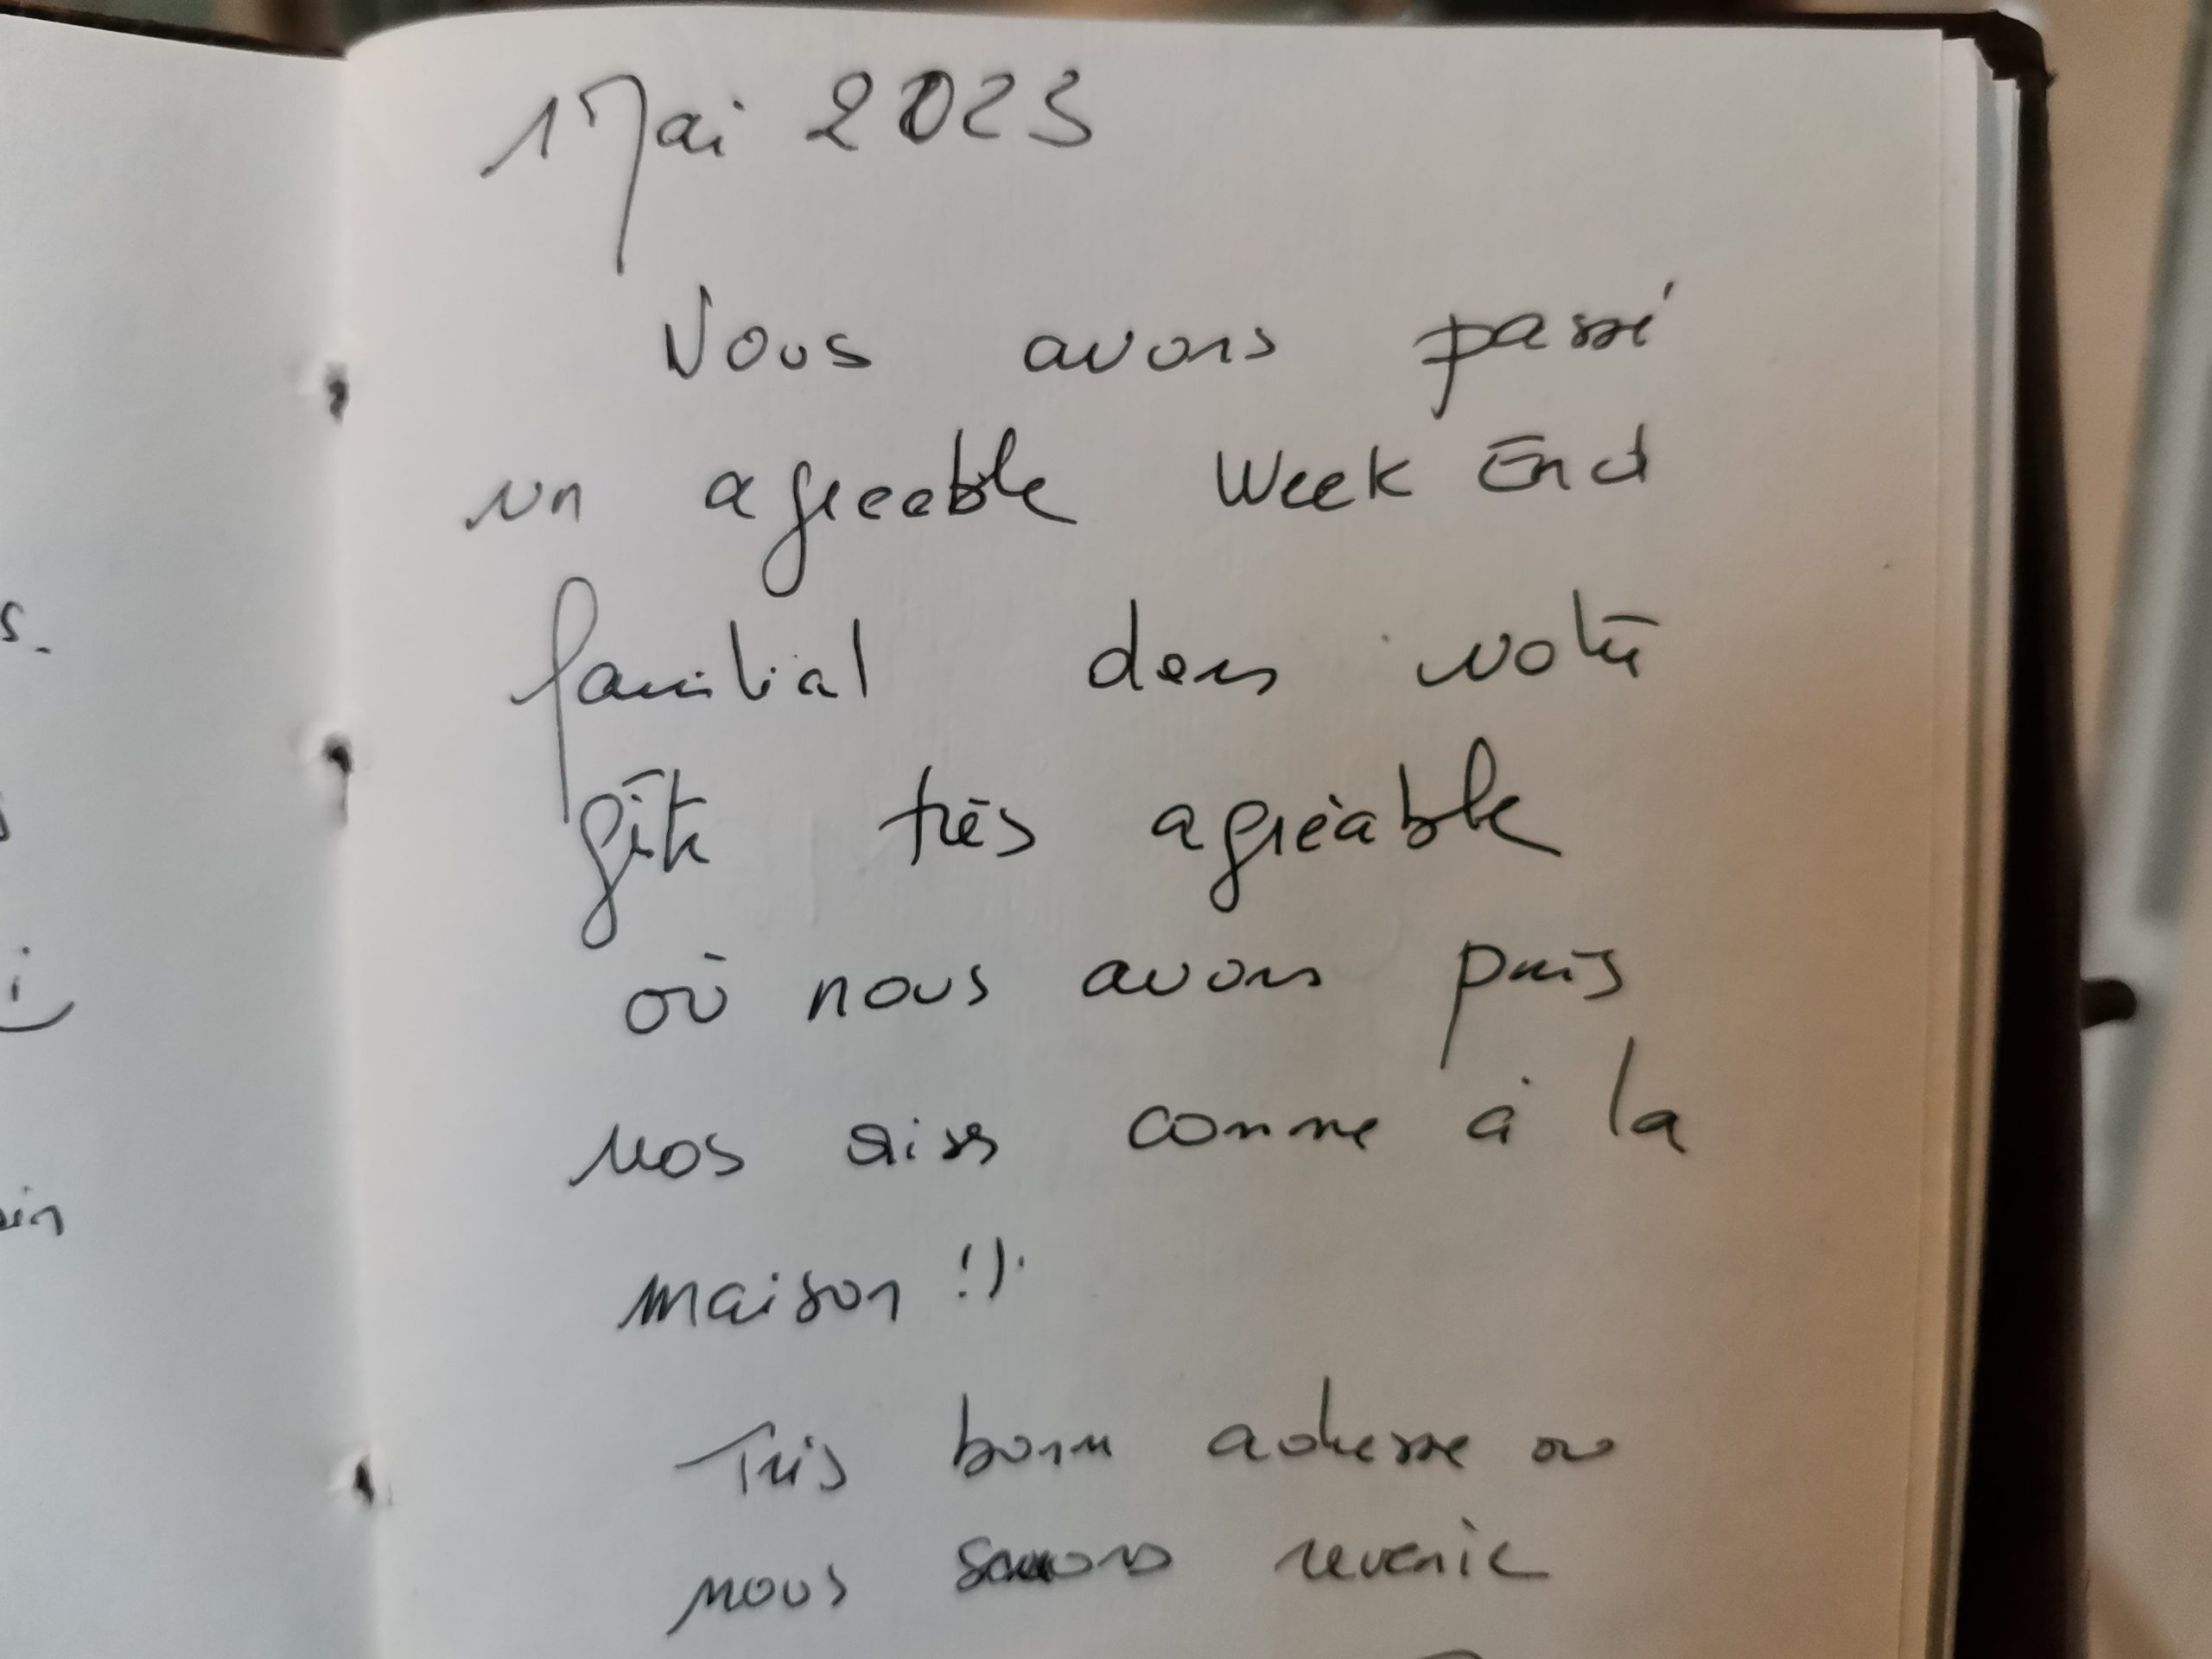 Mai 2023
Nous avons passé
un agreable Week End
familial dans votre
gîte très agréable
où nous avons pris
nos aises comme à la
maison !).
Très bonne adresse où
nous saurons revenir
s.
i
in